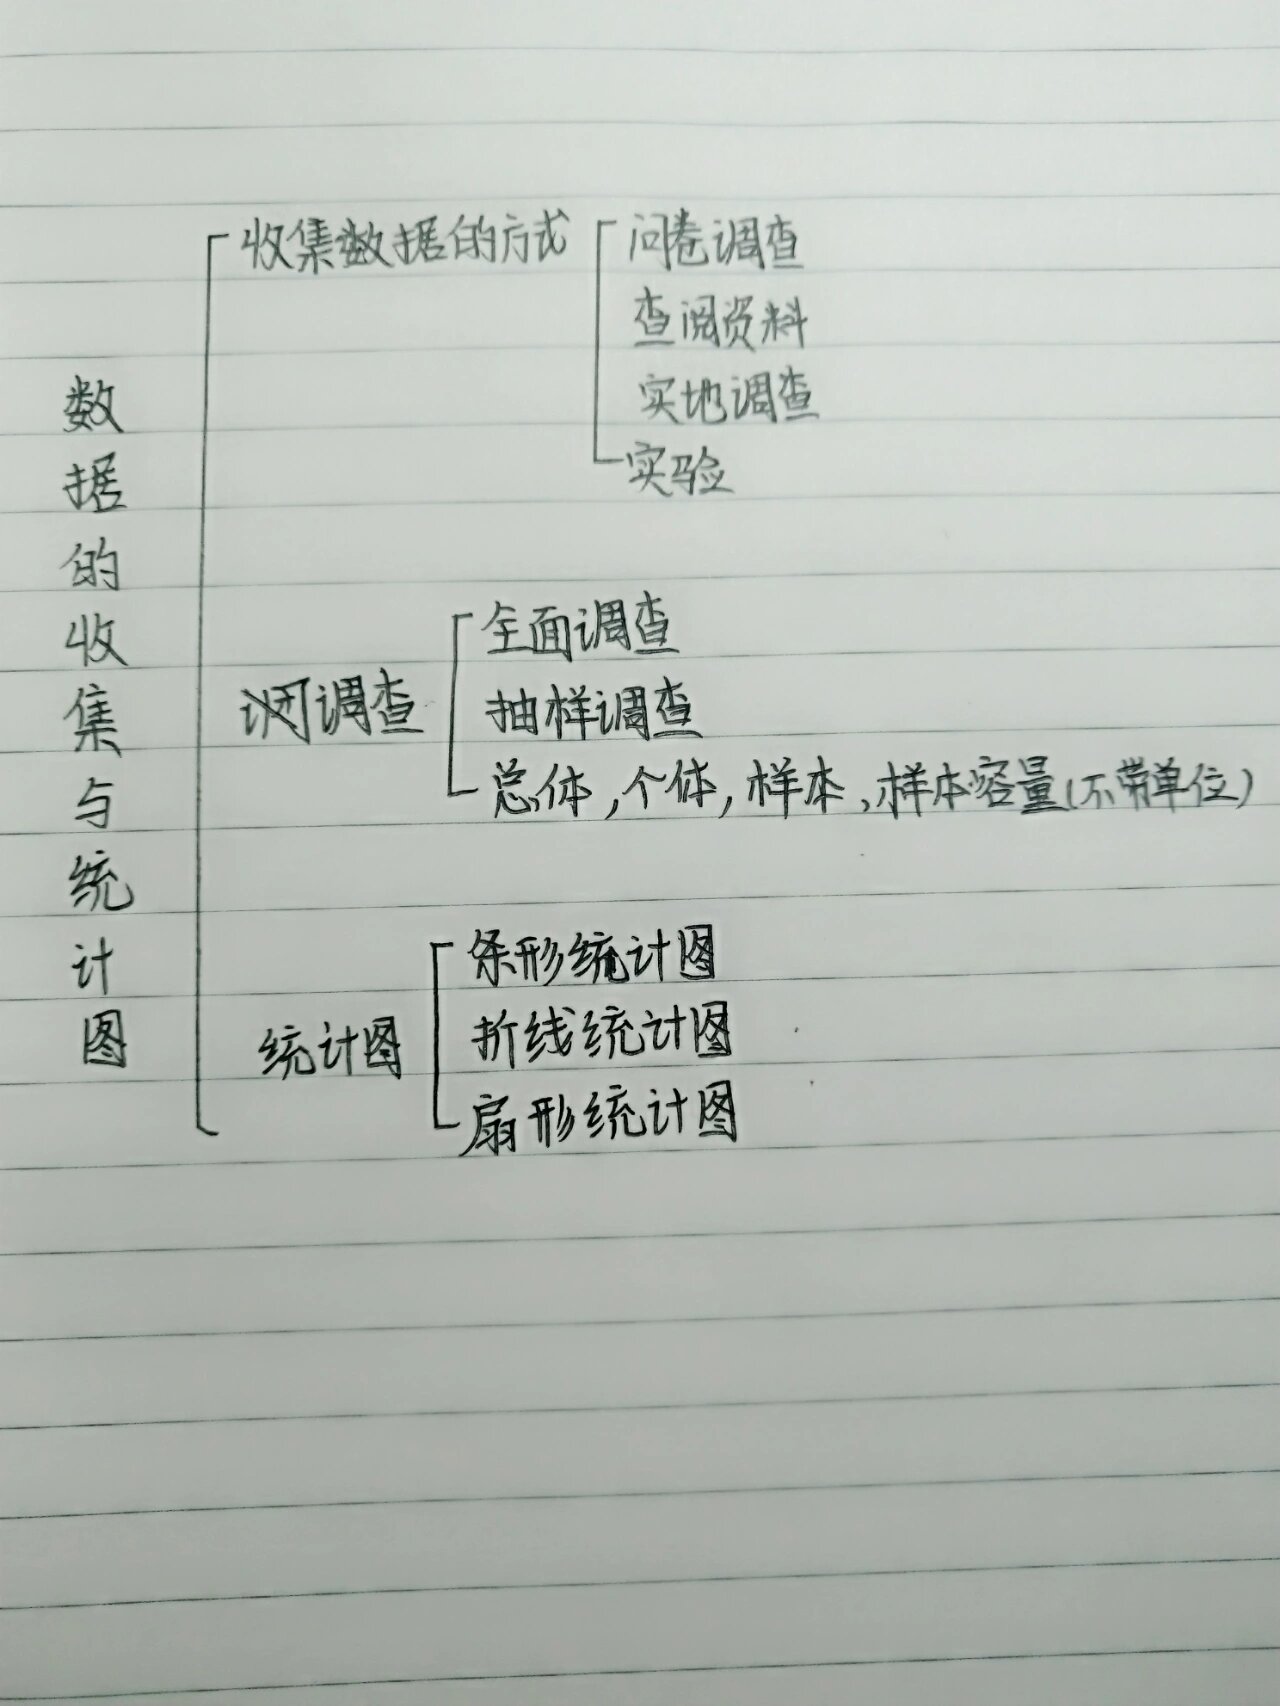 数据的收集与统计图
收集数据的方式
问卷调查
查阅资料
实地调查
实验
调查
全面调查
抽样调查
总体,个体,样本,样本容量(不带单位)
统计图
条形统计图
折线统计图
扇形统计图